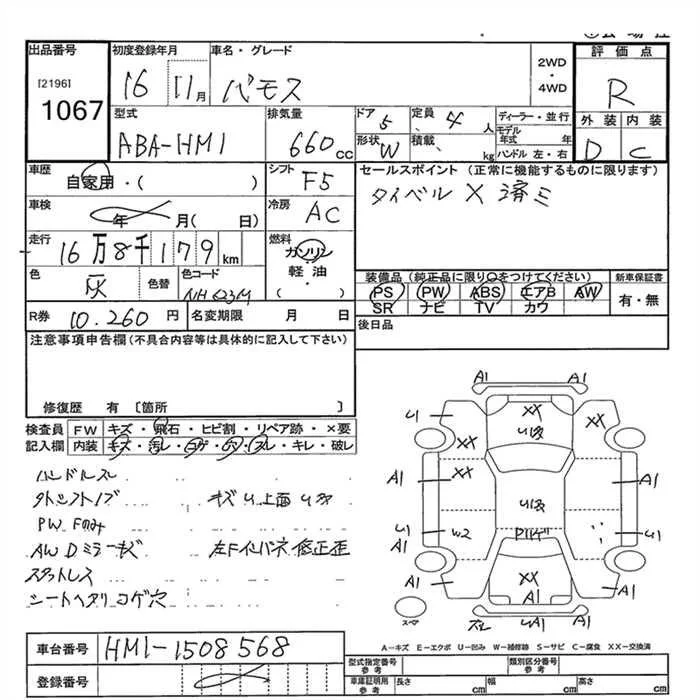 出品番号 初度登録年月 車名・グレード 2WD・4WD 評価点
[2196]
1067
16 11月 バモス R
型式 排気量 ドア 定員 ディーラー・並行 外装 内装
ABA-HM1 660cc 5 4人 モデル年式 年
形状 W 積載 kg ハンドル 左・右 D C
車歴 シフト セールスポイント (正常に機能するものに限ります)
自家用・( ) F5 タイベル X 済ミ
車検 冷房
年 月( 日) AC
走行 燃料
16万8千179km ガソリン
軽油
( )
色 灰 色替 色コード NH623M
装備品 (純正品に限り○をつけてください) 新車保証書
PS PW ABS エアB AW 有・無
SR ナビ TV カワ
R券 10.260円 名変期限 月 日 後日品
注意事項申告欄(不具合内容等は具体的に記入して下さい)
修復歴 有 〔箇所 〕
検査員 FW キズ・飛石・ヒビ割・リペア跡・×要
記入欄 内装 キズ・汚レ・コゲ・穴・スレ・キレ・破レ
ハンドルスレ
タトシフトノブ キズ U 上面 U多
PW Fのみ
AW Dミラーキズ 左Fインパネ修正歪
スタットレス
シートヘタリ コゲ穴
A1 A1
U1 XX XX
U多
XX
XX
A1 A1
U多
U1 W2 Pハゲ U1
A1 A1
XX
A1 A1
スペア スレ UA1 A1
A-キズ E-エクボ U-凹み W-補修跡 S-サビ C-腐食 XX-交換済
車台番号 HM1-1508568
登録番号
型式指定番号 参考 類別区分番号 参考
車庫証明用 参考 長さ cm 幅 cm 高さ cm